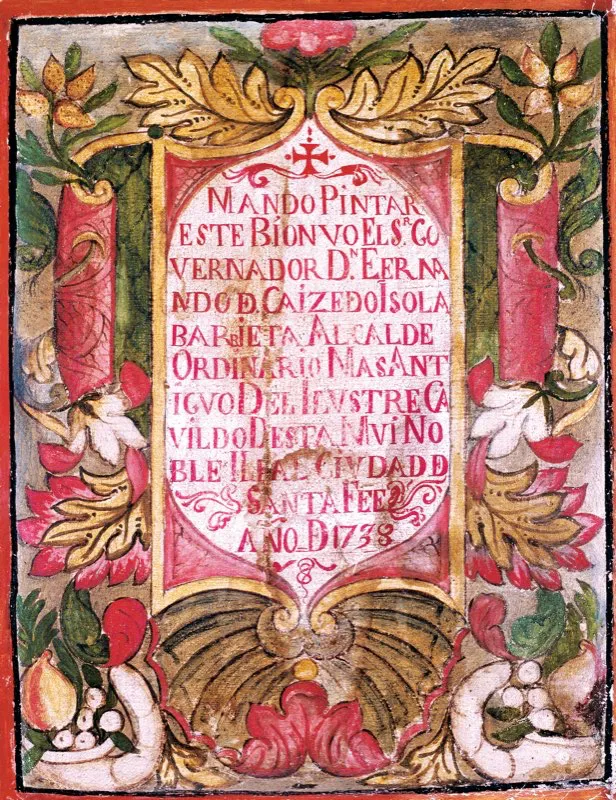 MANDO PINTAR
ESTE BIONVO EL S.R GO
VERNADOR D.N FERNA
NDO D. CAIZEDO I SOLA
BARRIETA ALCALDE
ORDINARIO MAS ANT
IGVO DEL ILVSTRE CA
VILDO DESTA MVI NO
BLE IL EAL CIVDAD D
SANTA FEE
AÑO D 1738